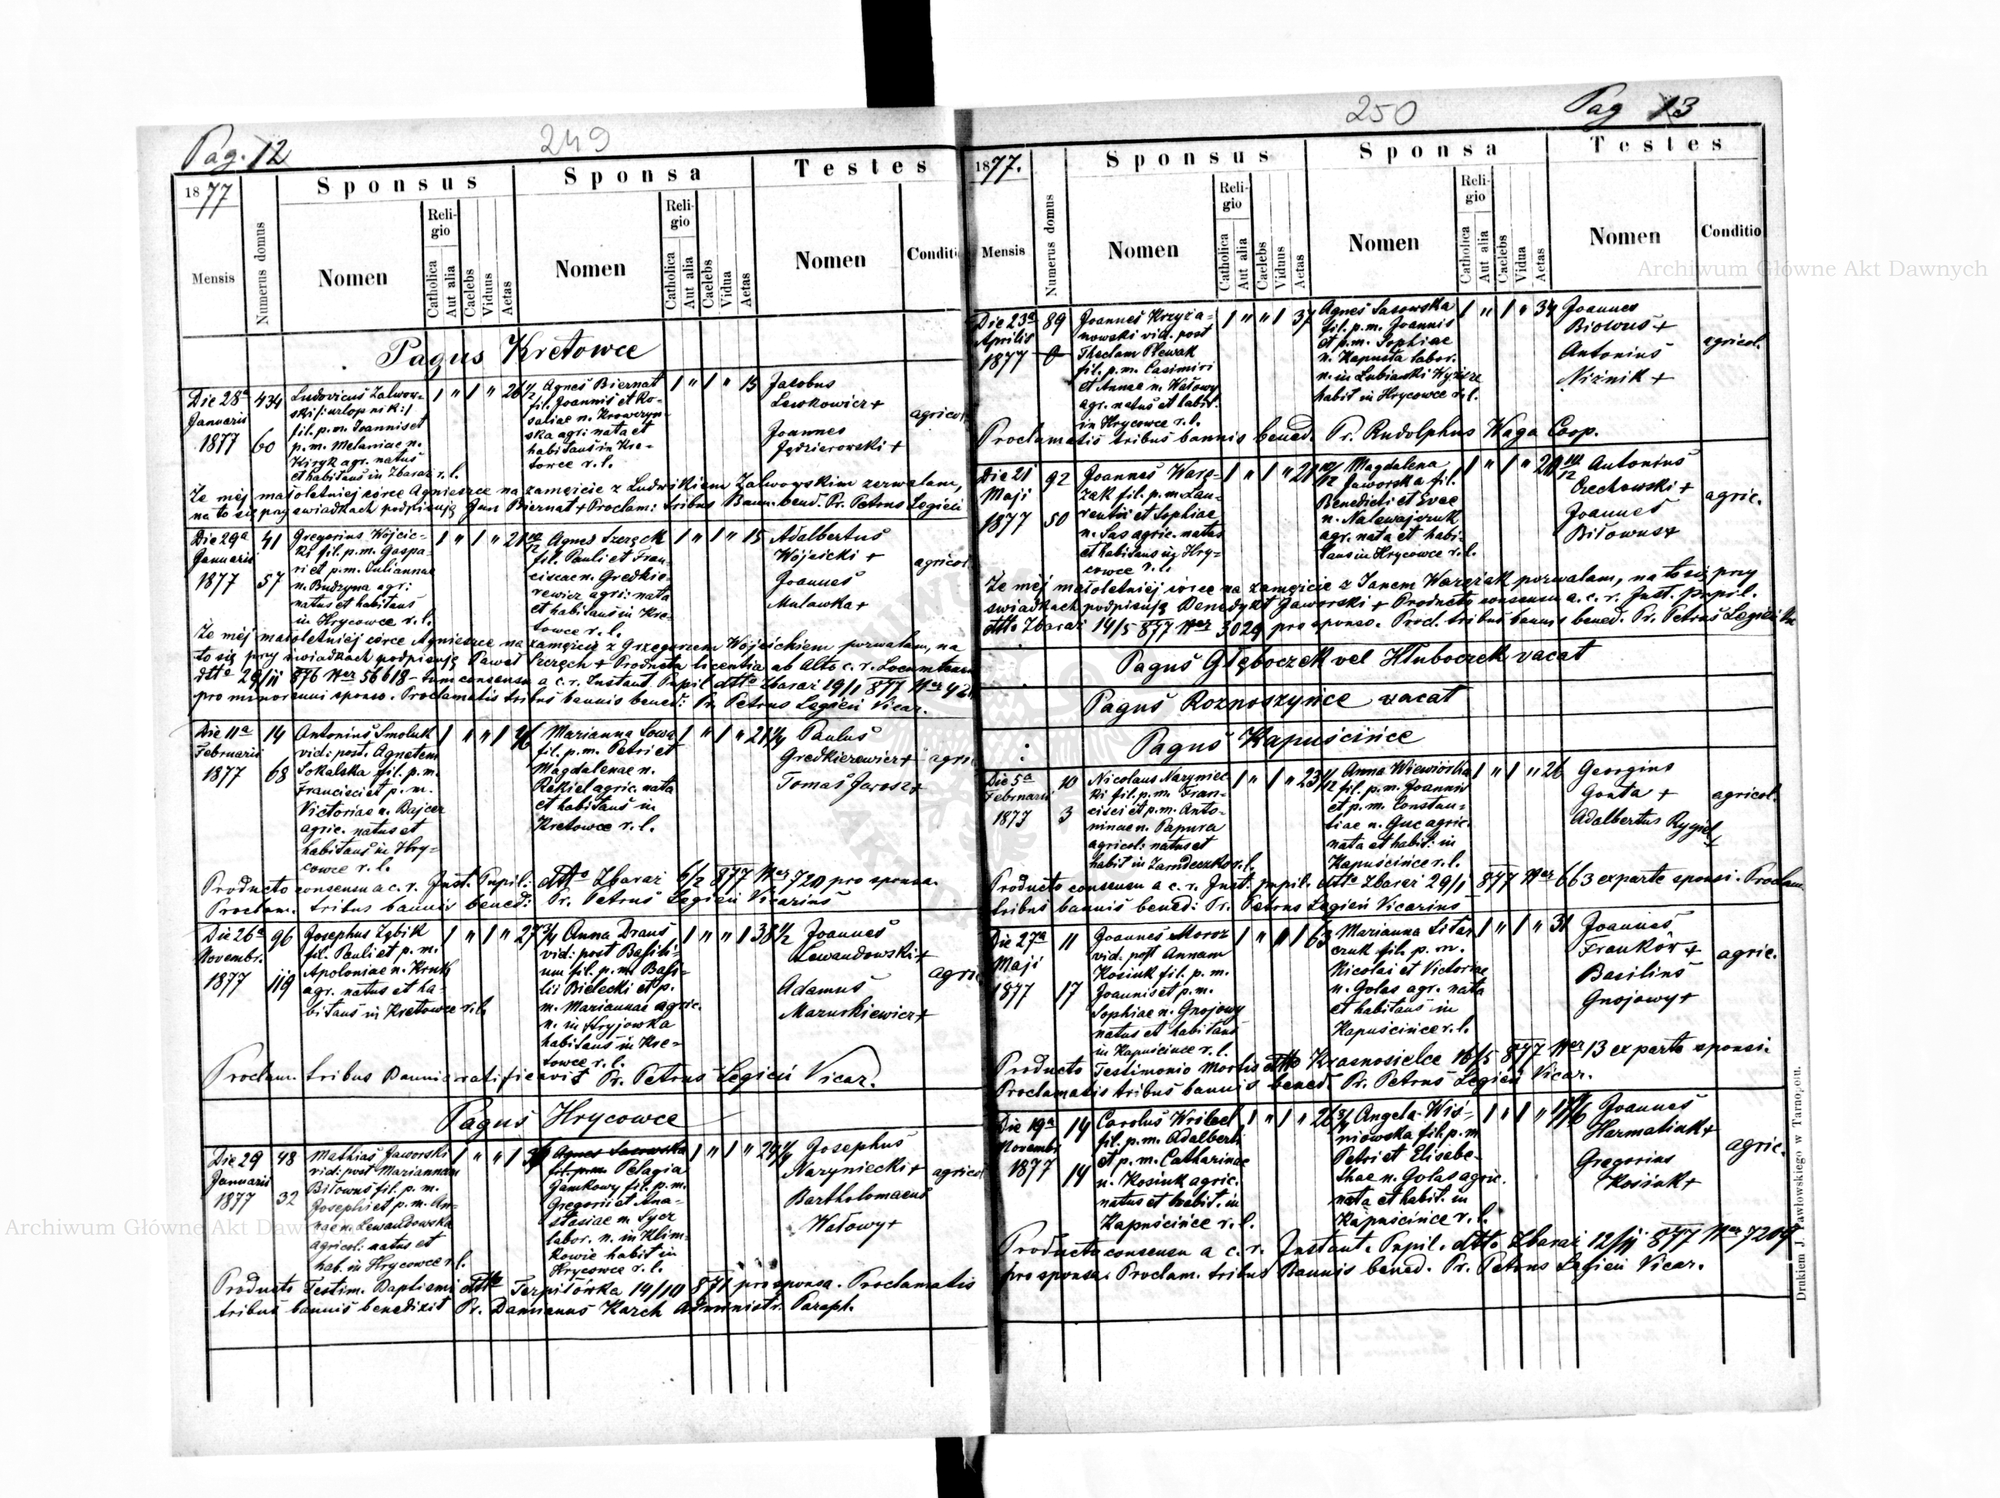 Pag. 12
249
1877
Sponsus
Sponsa
Testes
Mensis
Numerus domus
Nomen
Religio
Catholica
Aut alia
Caelebs
Viduus
Aetas
Nomen
Religio
Catholica
Aut alia
Caelebs
Vidua
Aetas
Nomen
Conditio
Pagus Kretowce
Die 28a
Januarii
1877
434
60
Ludovicus Zalwow-
ski /:urlopnik:/
fil. p.m. Joannis et
p.m. Melaniae n.
Kiryk agr. natus
et habitans in Zbaraż r.l.
1 " 1 " 26 1/2
Agnes Biernat
fil. Joannis et Ro-
saliae n. Krowczyn-
ska agr. nata et
habitans in Kre-
towce r.l.
1 " 1 " 15
Jacobus
Lewkowicz +
Joannes
Jędzierowski +
agricol.
Że mej małoletniej córce Agnieszce na zamęzcie z Ludwikiem Zalwowskim zezwalam,
na to się przy swiadkach podpisują Jan Biernat + Proclam: tribus Bann. bened. Pr. Petrus Legień
Die 29a
Januarii
1877
41
57
Gregorius Wójcic-
ki fil. p.m. Gaspa-
ri et p.m. Juliannae
n. Budzyna agr:
natus et habitans
in Hrycowce r.l.
1 " 1 " 21 10/12
Agnes Szerzch
fil. Pauli et Fran-
ciscae n. Gredkie-
rewicz agri: nata
et habitans in Kre-
towce r.l.
1 " 1 " 15
Adalbertus
Wójcicki +
Joannes
Mulawka +
agricol.
Że mej małoletniej córce Agnieszce na zamęzcie z Grzegorzem Wójcickiem pozwalam, na
to się przy swiadkach podpisują Paweł Szerzch + Producta licentia ab Alto c.r. Locumten.
dtto 29/11 876 Ner 56618 - tum consensu a c.r. Instant. Pupil dtto Zbaraż 19/1 877 Ner 42
pro minorenni sponso. Proclamatis tribus bannis bened: Pr. Petrus Legień Vicar.
Die 11a
Februarii
1877
14
68
Antonius Smoluk
vid: post. Agnetem
Sokalska fil. p.m.
Francisci et p.m.
Victoriae n. Bajcer
agric. natus et
habitans in Hry-
cowce r.l.
1 " " 1
Marianna Sowa
fil. p.m. Petri et
Magdalenae n.
Rekiel agric. nata
et habitans in
Kretowce r.l.
1 " 1 " 21
Paulus
Gredkierewicz +
Tomas Jarosz +
agric.
Producto consensu a c.r. Inst: Pupil: dtto Zbaraż 6/2 877 Ner 720 pro sponsa.
Proclam. tribus bannis bened: Pr. Petrus Legień Vicarius
Die 26a
Novembr.
1877
96
119
Josephus Zybik
fil. Pauli et p.m.
Apoloniae n. Kruk
agr. natus et ha-
bitans in Kretowce r.l.
1 " 1 " 27 3/4
Anna Draus
vid: post Basili-
um fil. p.m. Basi-
lii Bielecki et p.
m. Mariannae agric.
n. in Hryjowka
habitans in Kre-
towce r.l.
1 " " 1 38 1/2
Joannes
Lewandowski +
Adamus
Mazurkiewicz +
agric.
Proclam. tribus Bannis ratificavit Pr. Petrus Legień Vicar.
Pagus Hrycowce
Die 29
Januarii
1877
48
32
Mathias Jaworski
vid: post Mariannam
Bitowus fil. p.m.
Josephi et p.m. An-
nae n. Lewandowska
agricol: natus et
hab. in Hrycowce r.l.
1 " " 1
Agnes Sasowska
fil. p.m. Pelagia
Jamkowy fil. p.m.
Gregorii et Ana-
stasiae n. Sycz
labor. n. in Klim-
kowie habit in
Hrycowce r.l.
1 " 1 " 24
Josephus
Naryniecki +
Bartholomaeus
Wałowy +
agricol
Producto Testim. Baptismi dtto Terpiłówka 14/10 871 pro sponsa. Proclamatis
tribus bannis benedixit Pr. Damianus Karch Administr. Paroch.
Pag 13
250
1877.
Sponsus
Sponsa
Testes
Mensis
Numerus domus
Nomen
Religio
Catholica
Aut alia
Caelebs
Viduus
Aetas
Nomen
Religio
Catholica
Aut alia
Caelebs
Vidua
Aetas
Nomen
Conditio
Die 23a
Aprilis
1877
89
Joannes Krzyża-
nowski vid. post
Theclam Plewak
fil. p.m. Casimiri
et Annae n. Wałowy
agr. natus et habit.
in Hrycowce r.l.
1 " " 1 37
Agnes Sasowska
fil. p.m. Joannis
et p.m. Sophiae
n. Kapusta labor.
n. in Lubianki Wyższe
habit in Hrycowce r.l.
1 " 1 " 34
Joannes
Biowus +
Antonius
Niznik +
agricol.
Proclamatis tribus bannis bened. Pr. Rudolphus Waga Coop.
Die 21
Maji
1877
92
50
Joannes Warę-
żak fil. p.m. Lau-
rentii et Sophiae
n. Sas agric. natus
et habitans in Hry-
cowce r.l.
1 " 1 " 21 10/12
Magdalena
Jaworska fil.
Benedicti et Evae
n. Nalewajczuk
agr. nata et habi-
tans in Hrycowce r.l.
1 " 1 " 20 10/12
Antonius
Orzechowski +
Joannes
Bitowus +
agric.
Że mej małoletniej córce na zamęzcie z Janem Warężak pozwalam, na to się przy
swiadkach podpisują Benedykt Jaworski + Producto consensu a. c. r. Inst. pupil.
dtto Zbaraż 14/5 877 Ner 3029 pro sponso. Procl. tribus bannis bened. Pr. Petrus Legień Vic
Pagus Głęboczek vel Hłuboczek vacat
Pagus Roznoszyńce vacat
Pagus Kapuścińce
Die 5a
Februarii
1877
10
3
Nicolaus Naryniec
ki fil. p.m. Fran-
cisci et p.m. Anto-
ninae n. Papura
agricol: natus et
habit in Zarudeczko r.l.
1 " 1 " 23 1/12
Anna Wiewiórka
fil. p.m. Joannis
et p.m. Constan-
tiae n. Guc agric.
nata et habit: in
Kapuścińce r.l.
1 " 1 " 26
Georgius
Gonta +
Adalbertus Rygiel
+
agricol.
Producto consensu a c.r. Inst. pupil. dtto Zbaraż 29/1 877 Ner 663 ex parte sponsi. Proclam.
tribus bannis bened: Pr. Petrus Legień Vicarius
Die 27a
Maji
1877
11
17
Joannes Moroz
vid. post Annam
Kosiuk fil. p.m.
Joannis et p.m.
Sophiae n. Gnojowy
natus et habitans
in Kapuścince r.l.
1 " " 1 63
Marianna Sitar
czuk fil. p.m.
Nicolai et Victoriae
n. Golas agr. nata
et habitans in
Kapuścińce r.l.
1 " 1 " 31
Joannes
Frankow +
Basilius
Gnojowy +
agric.
Producto Testimonio Mortis dtto Krasnosielce 16/5 877 Ner 13 ex parte sponsi.
Proclamatis tribus bannis bened. Pr. Petrus Legień Vicar.
Die 19a
Novembr
1877
14
14
Carolus Wróbel
fil. p.m. Adalberti
et p.m. Catharinae
n. Kosiuk agric.
natus et habit. in
Kapuścińce r.l.
1 " 1 " 26 3/4
Angela Wiś-
niowska fil. p.m
Petri et Elisabe-
thae n. Golas agric.
nata et habit. in
Kapuścińce r.l.
1 " 1 "
Joannes
Harmatiuk +
Gregorius
Kosiuk +
agric.
Producto consensu a c.r. Instant. Pupil. dtto Zbaraż 12/11 877 Ner 7209
pro sponsa. Proclam. tribus Bannis bened. Pr. Petrus Legień Vicar.
Drukiem J. Pawłowskiego w Tarnopolu.
Archiwum Główne Akt Dawnych
Archiwum Główne Akt Dawnych